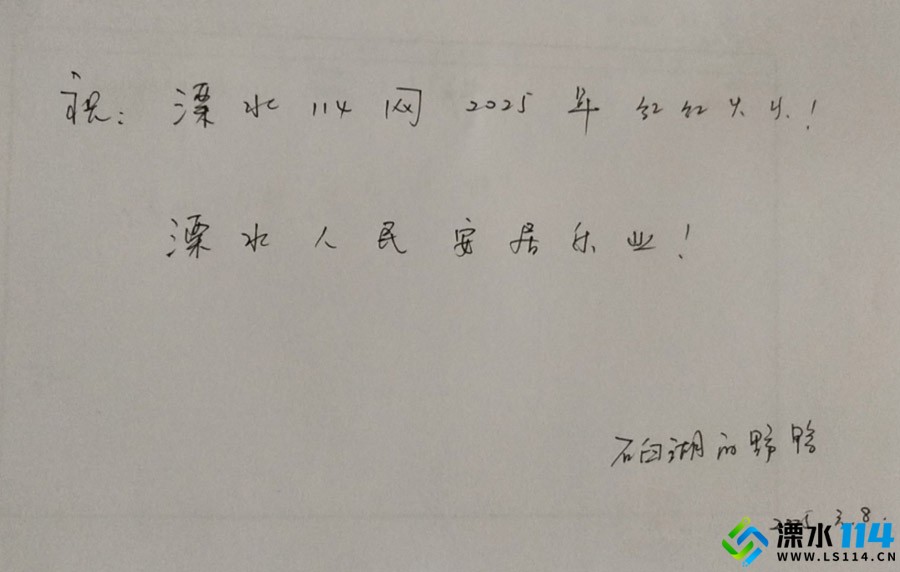 祝：溧水114网2025年红红火火！
溧水人民安居乐业！
石臼湖的野鸭
2025.3.8.
溧水114
WWW.LS114.CN